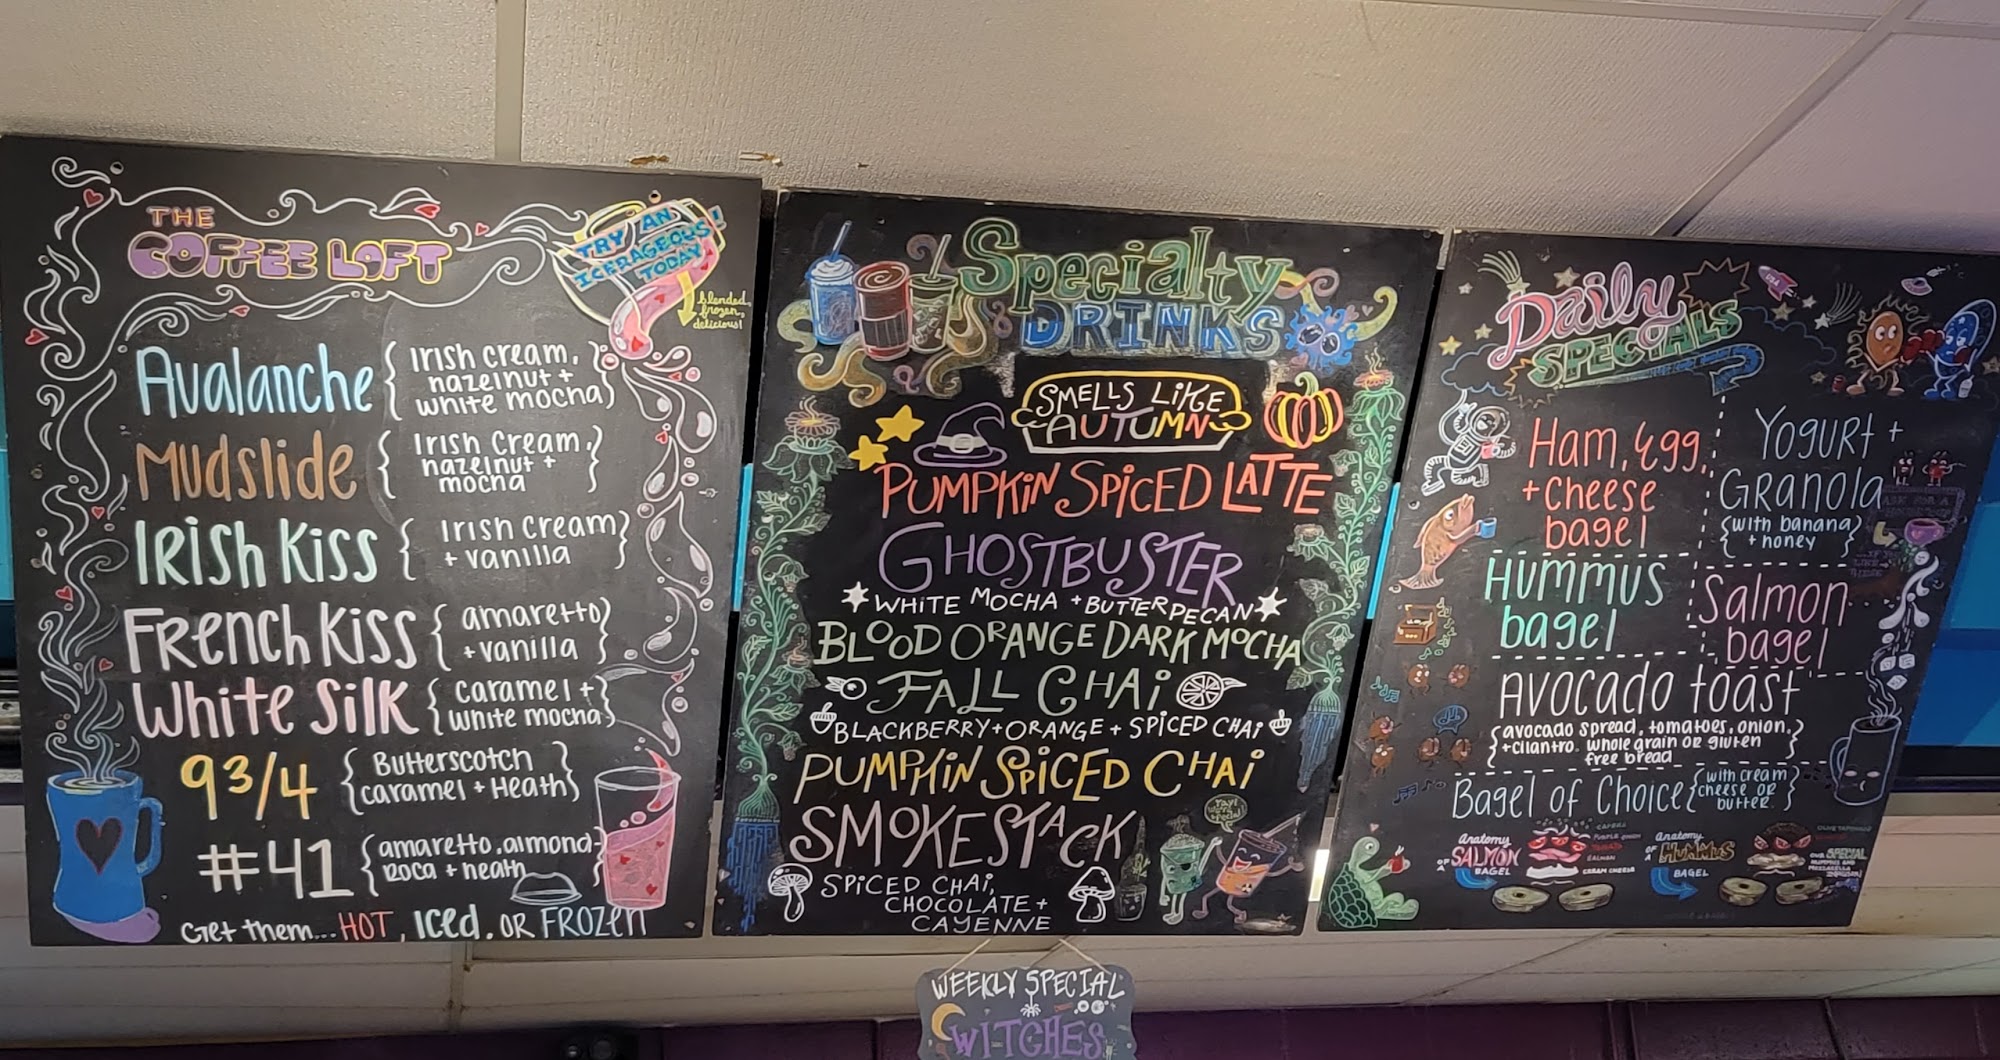 THE
COFFEE LOFT
TRY AN
ICERAGEOUS!
TODAY
blended,
frozen,
delicious!
Avalanche { Irish cream,
hazelnut +
white mocha }
Mudslide { Irish Cream,
hazelnut +
mocha }
Irish Kiss { Irish cream
+ vanilla }
French Kiss { amaretto
+ vanilla }
White Silk { caramel +
white mocha }
9 3/4 { Butterscotch
caramel + Heath }
#41 { amaretto, almond-
Roca + heath
Get them... HOT, Iced, OR FROZEN
Specialty
DRINKS
SMELLS LIKE
AUTUMN
PUMPKIN SPICED LATTE
GHOSTBUSTER
WHITE MOCHA + BUTTER PECAN
BLOOD ORANGE DARK MOCHA
FALL CHAI
BLACKBERRY + ORANGE + SPICED CHAI
PUMPKIN SPICED CHAI
SMOKESTACK
SPICED CHAI,
CHOCOLATE +
CAYENNE
WEEKLY SPECIAL
WITCHES
Daily
SPECIALS
Ham, egg,
+ cheese
bagel
Yogurt +
Granola
{with banana
+ honey}
Hummus
bagel
Salmon
bagel
Avocado toast
{avocado spread, tomatoes, onion,
+ cilantro. whole grain or gluten
free bread }
Bagel of Choice {with cream
cheese OR
butter }
Anatomy
OF A SALMON
BAGEL
CAPERS
PURPLE ONION
TOMATO
SALMON
CREAM CHEESE
Anatomy
OF A HUMMUS
BAGEL
OUR SPECIAL
HUMMUS AND